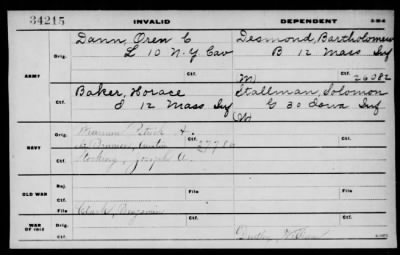 34215
INVALID
DEPENDENT
3-214
ARMY
Orig.
Dann, Oren C
L 10 N.Y Cav
Desmond, Bartholomew
B 12 Mass Inf
Ctf.
(M)
26082
Ctf.
Baker, Horace
I 12 Mass Inf
Stallman, Solomon
G 30 Iowa Inf
NAVY
Orig.
Ctf.
Ctf.
Stocking, Joseph A.
OLD WAR
Rej.
Ctf.
File
File
WAR OF 1812
Orig.
Clark, Benjamin
Ctf.
Ctf.